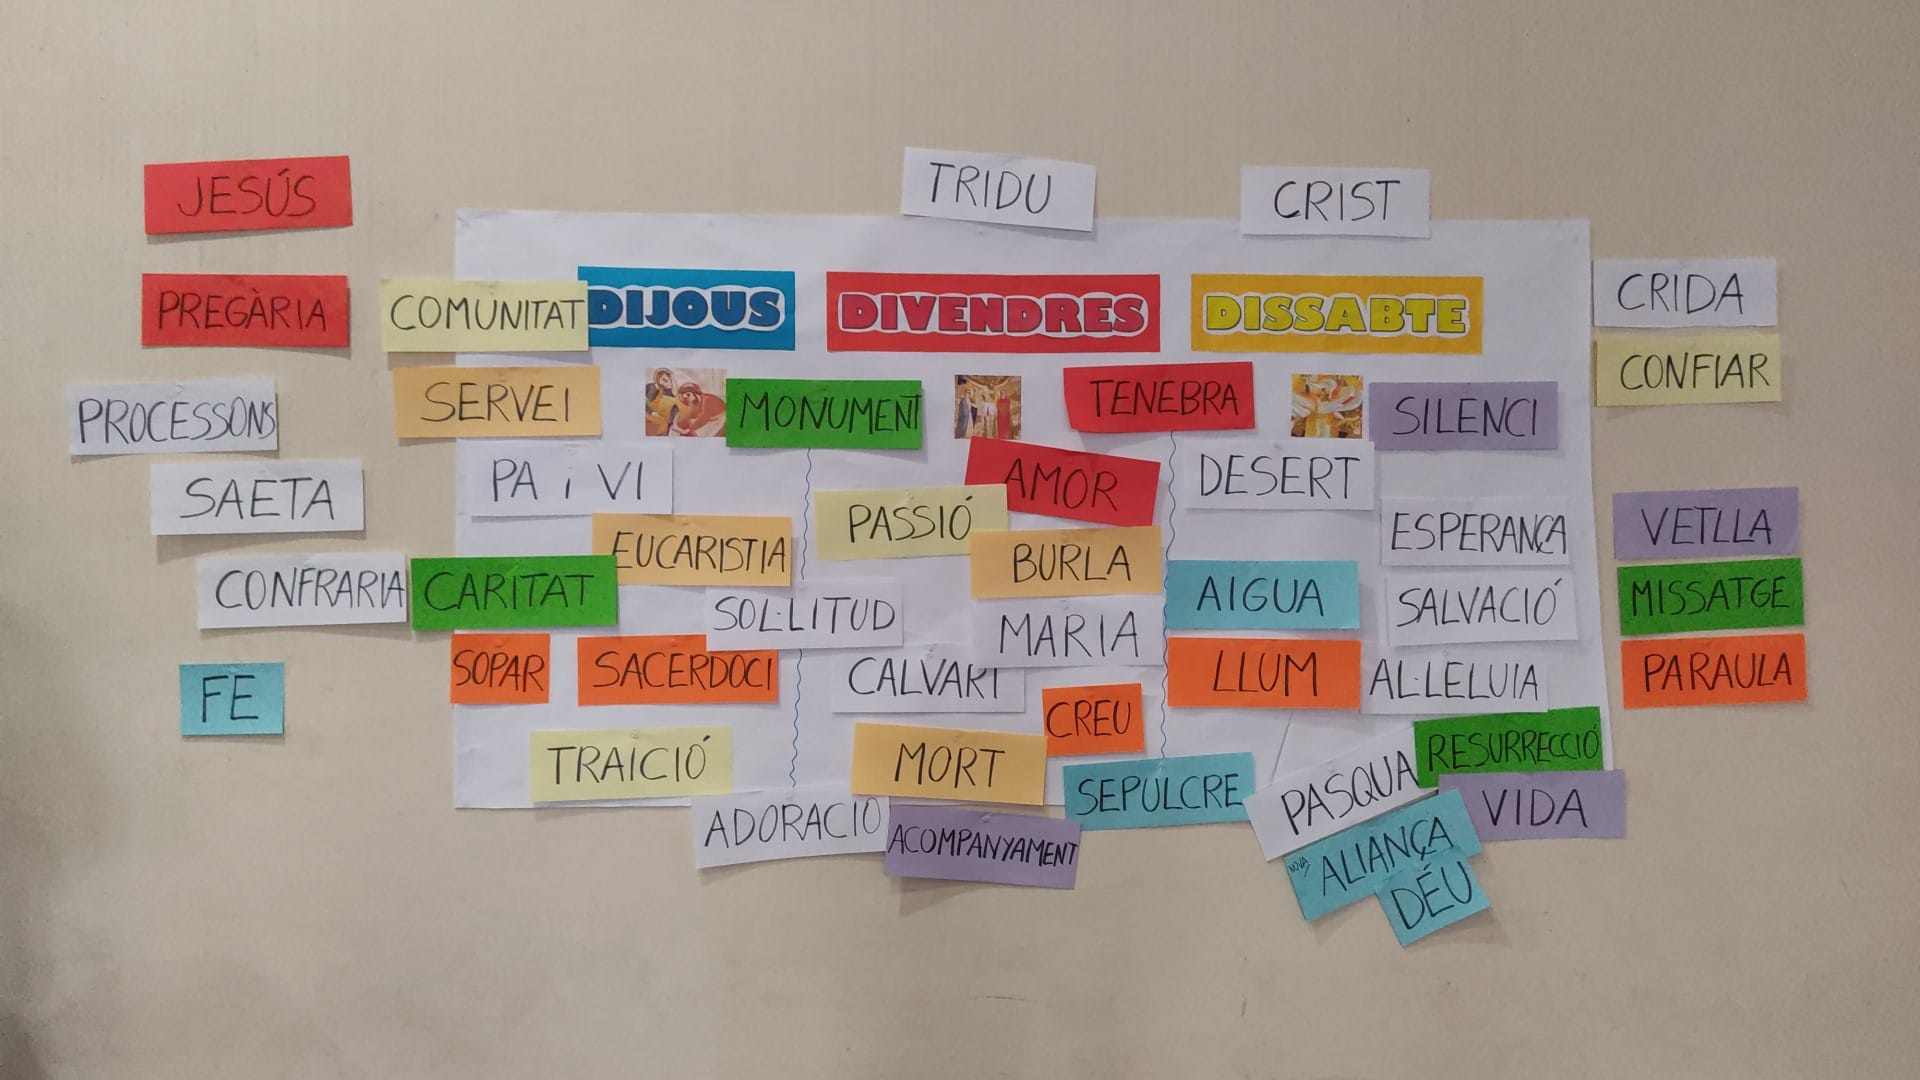 TRIDU
CRIST
JESÚS
PREGÀRIA
PROCESSONS
SAETA
CONFRARIA
FE
COMUNITAT
DIJOUS
SERVEI
MONUMENT
PA i VI
EUCARISTIA
CARITAT
SOL·LITUD
SOPAR
SACERDOCI
TRAICIÓ
ADORACIÓ
DIVENDRES
TENEBRA
AMOR
PASSIÓ
BURLA
MARIA
CALVARI
CREU
MORT
SEPULCRE
ACOMPANYAMENT
DISSABTE
SILENCI
DESERT
ESPERANÇA
AIGUA
SALVACIÓ
LLUM
AL·LELUIA
RESURRECCIÓ
PASQUA
VIDA
NOVA ALIANÇA
DÉU
CRIDA
CONFIAR
VETLLA
MISSATGE
PARAULA